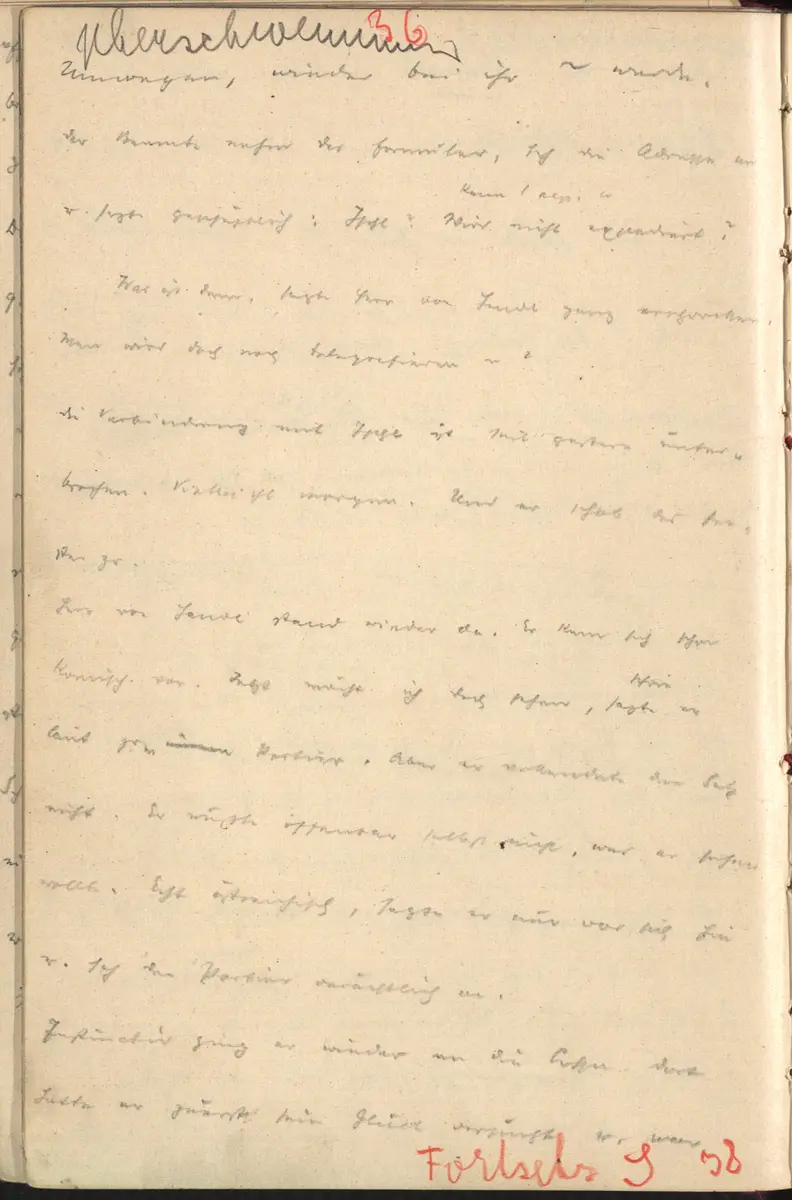 Überschwemmung 36
Umwegen, wieder bei ihr wurde.
der Beamte nahm das Formular, sah die Adresse an
u. sagte geschäftlich: Ischl? Wird nicht expediert?
Was ist denn, sagte Herr von Handl ganz erschrocken.
Man wird doch noch telegrafieren ?
die Verbindung mit Ischl ist seit gestern unter-
brochen. Vielleicht morgen. Und er schob das Fen-
ster zu.
Herr von Handl stand wieder da. Er kam sich schon
komisch vor. Jetzt möcht ich doch sehen, sagte er
laut zum Portier. Aber er vollendete den Satz
nicht. Er wußte offenbar selbst nicht, was er sehen
wollte. Echt östreichisch, sagte er nur vor sich hin
u. sah den Portier verächtlich an.
Instinctiv ging er wieder an die Cassa. dort
hatte er zuerst sein Glück versucht u. war
Fortsetz S 38